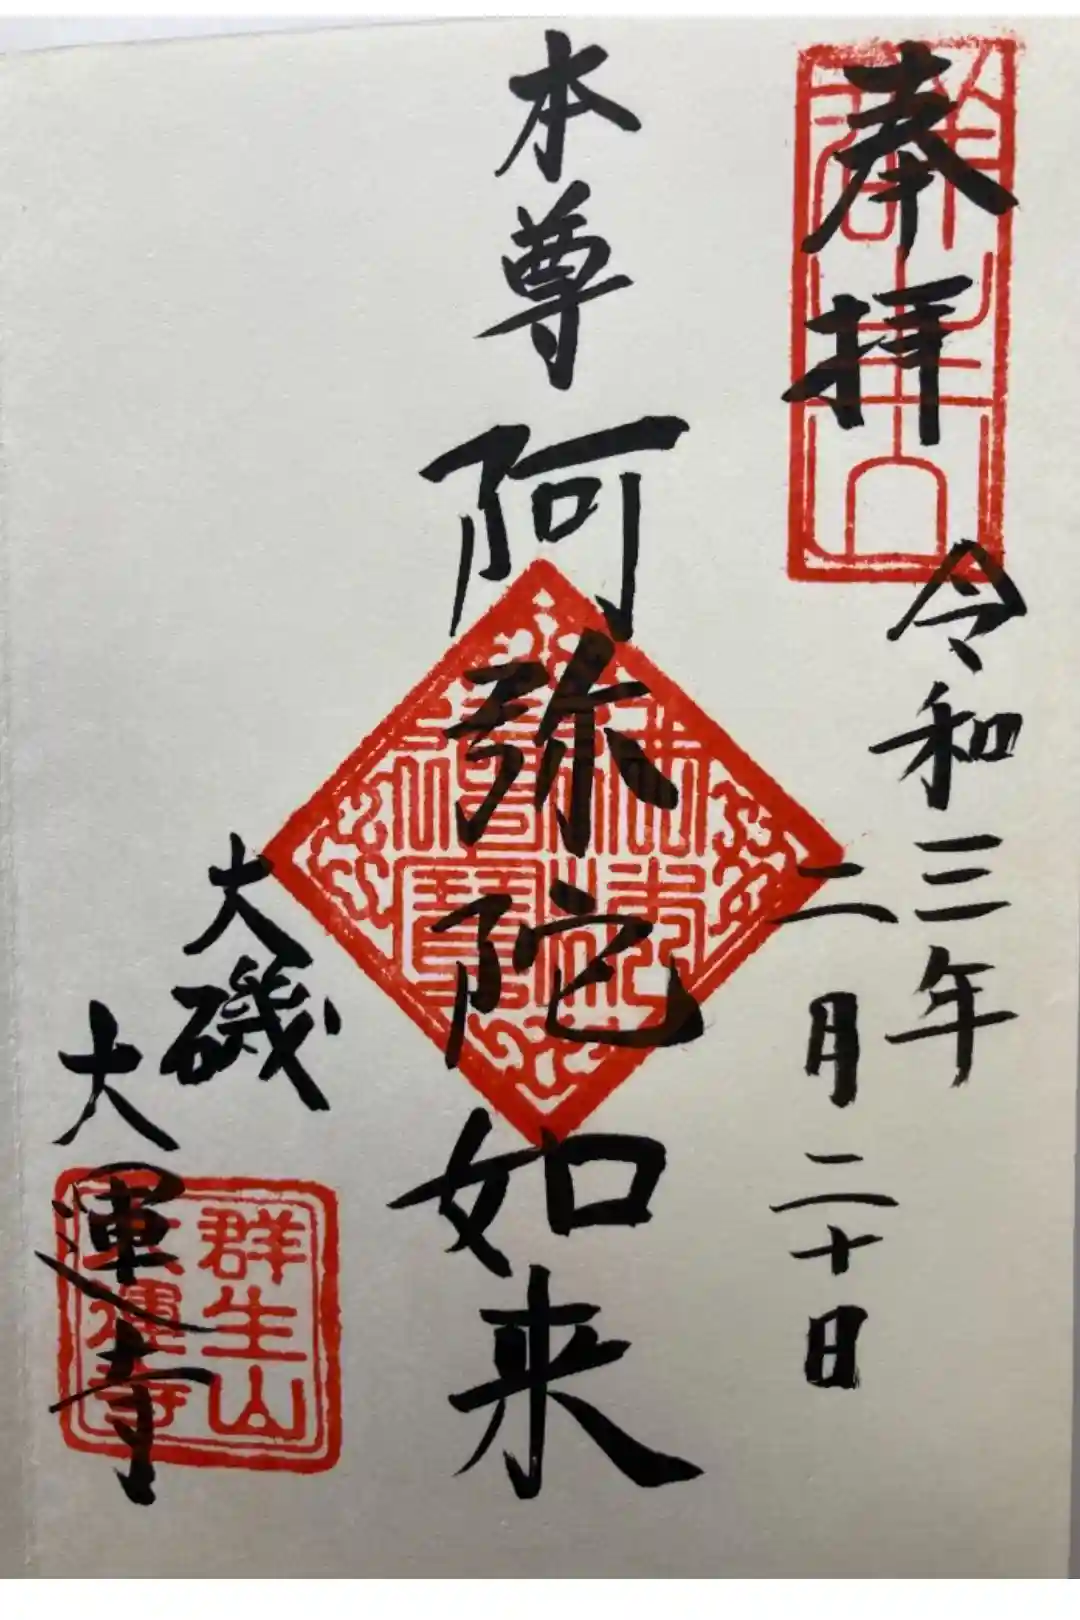 奉拝
群生山
令和三年
二月二十日
本尊 阿弥陀如来
佛法僧寳
大磯
大運寺
群生山
大運寺